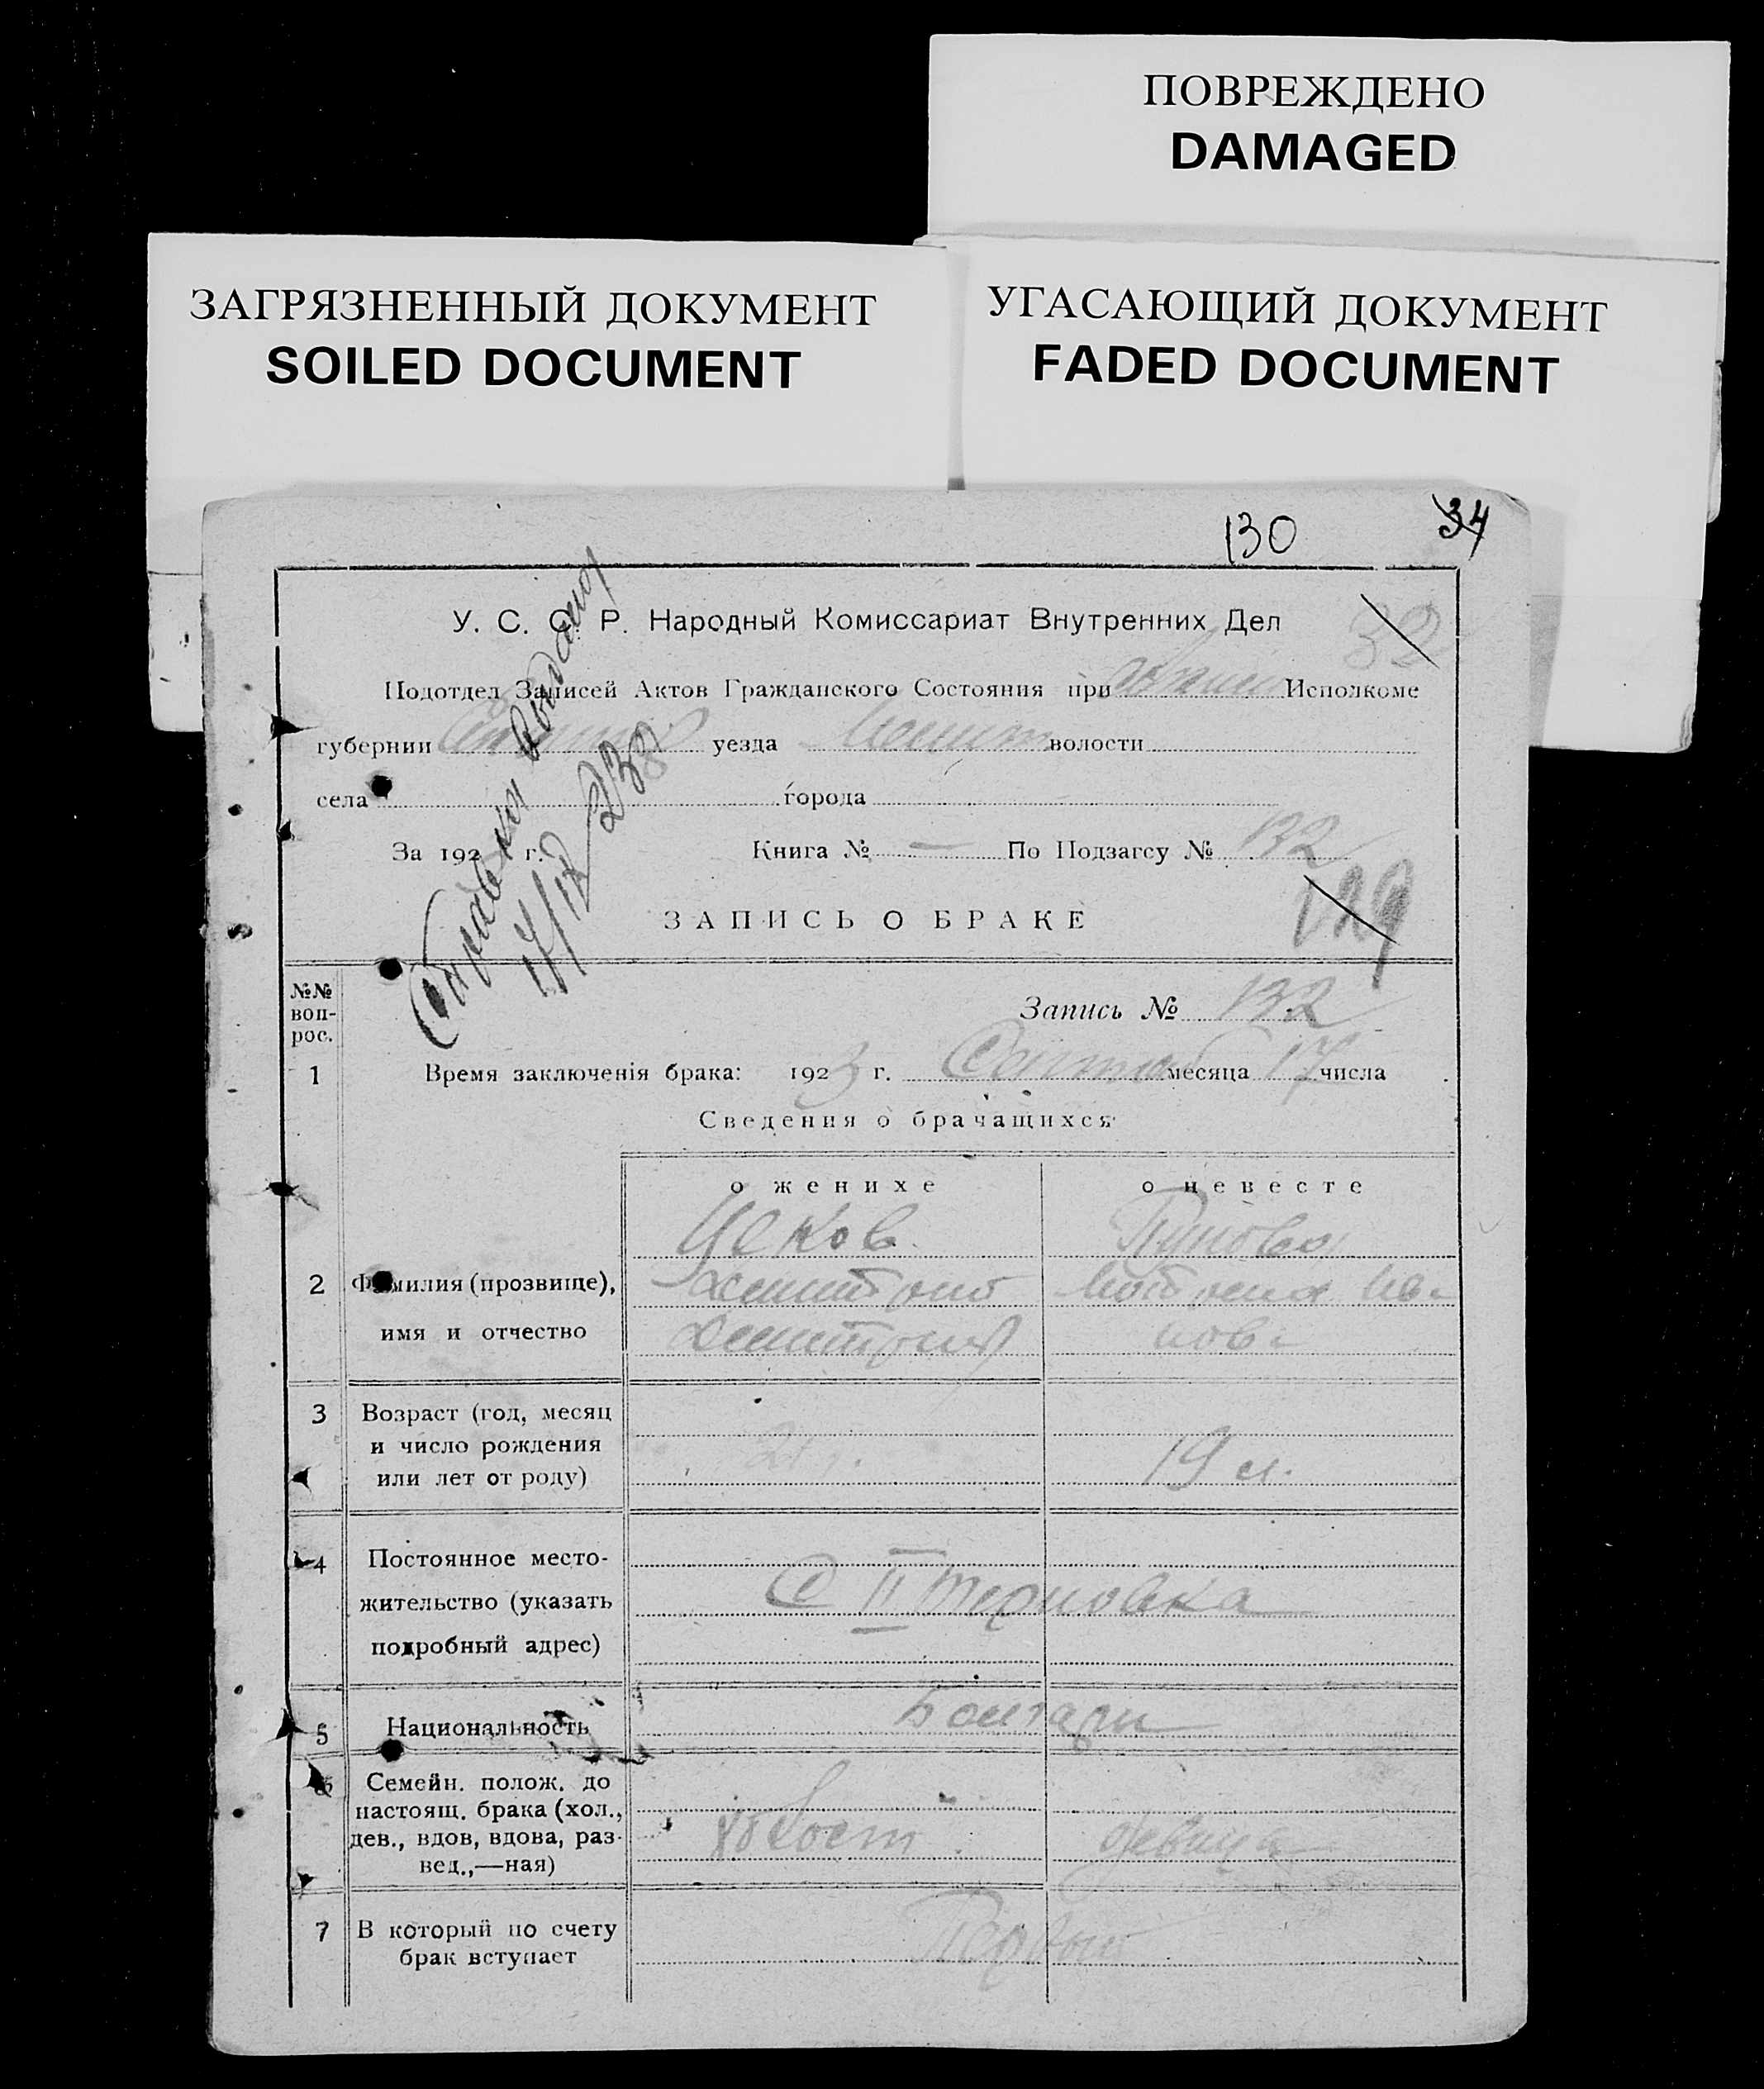 ПОВРЕЖДЕНО
DAMAGED
ЗАГРЯЗНЕННЫЙ ДОКУМЕНТ
SOILED DOCUMENT
УГАСАЮЩИЙ ДОКУМЕНТ
FADED DOCUMENT
130 34
У. С. С. Р. Народный Комиссариат Внутренних Дел
32
Подотдел Записей Актов Гражданского Состояния при Исполкоме
губернии уезда волости
села города
За 192 г. Книга № — По Подзагсу № 132
Справки выданы
129
ЗАПИСЬ О БРАКЕ
№№ воп-
рос.
Запись № 132
1 Время заключенія брака: 1923 г. месяца 17 числа
Сведения о брачащихся
о женихе о невесте
Цеков
2 Фамилия (прозвище),
имя и отчество
3 Возраст (год, месяц
и число рождения
или лет от роду)
19 л.
4 Постоянное место-
жительство (указать
подробный адрес)
С II Терновка
5 Национальность Болгары
6 Семейн. полож. до
настоящ. брака (хол.,
дев., вдов, вдова, раз-
вед.,—ная)
холост девица
7 В который по счету
брак вступает
Первый